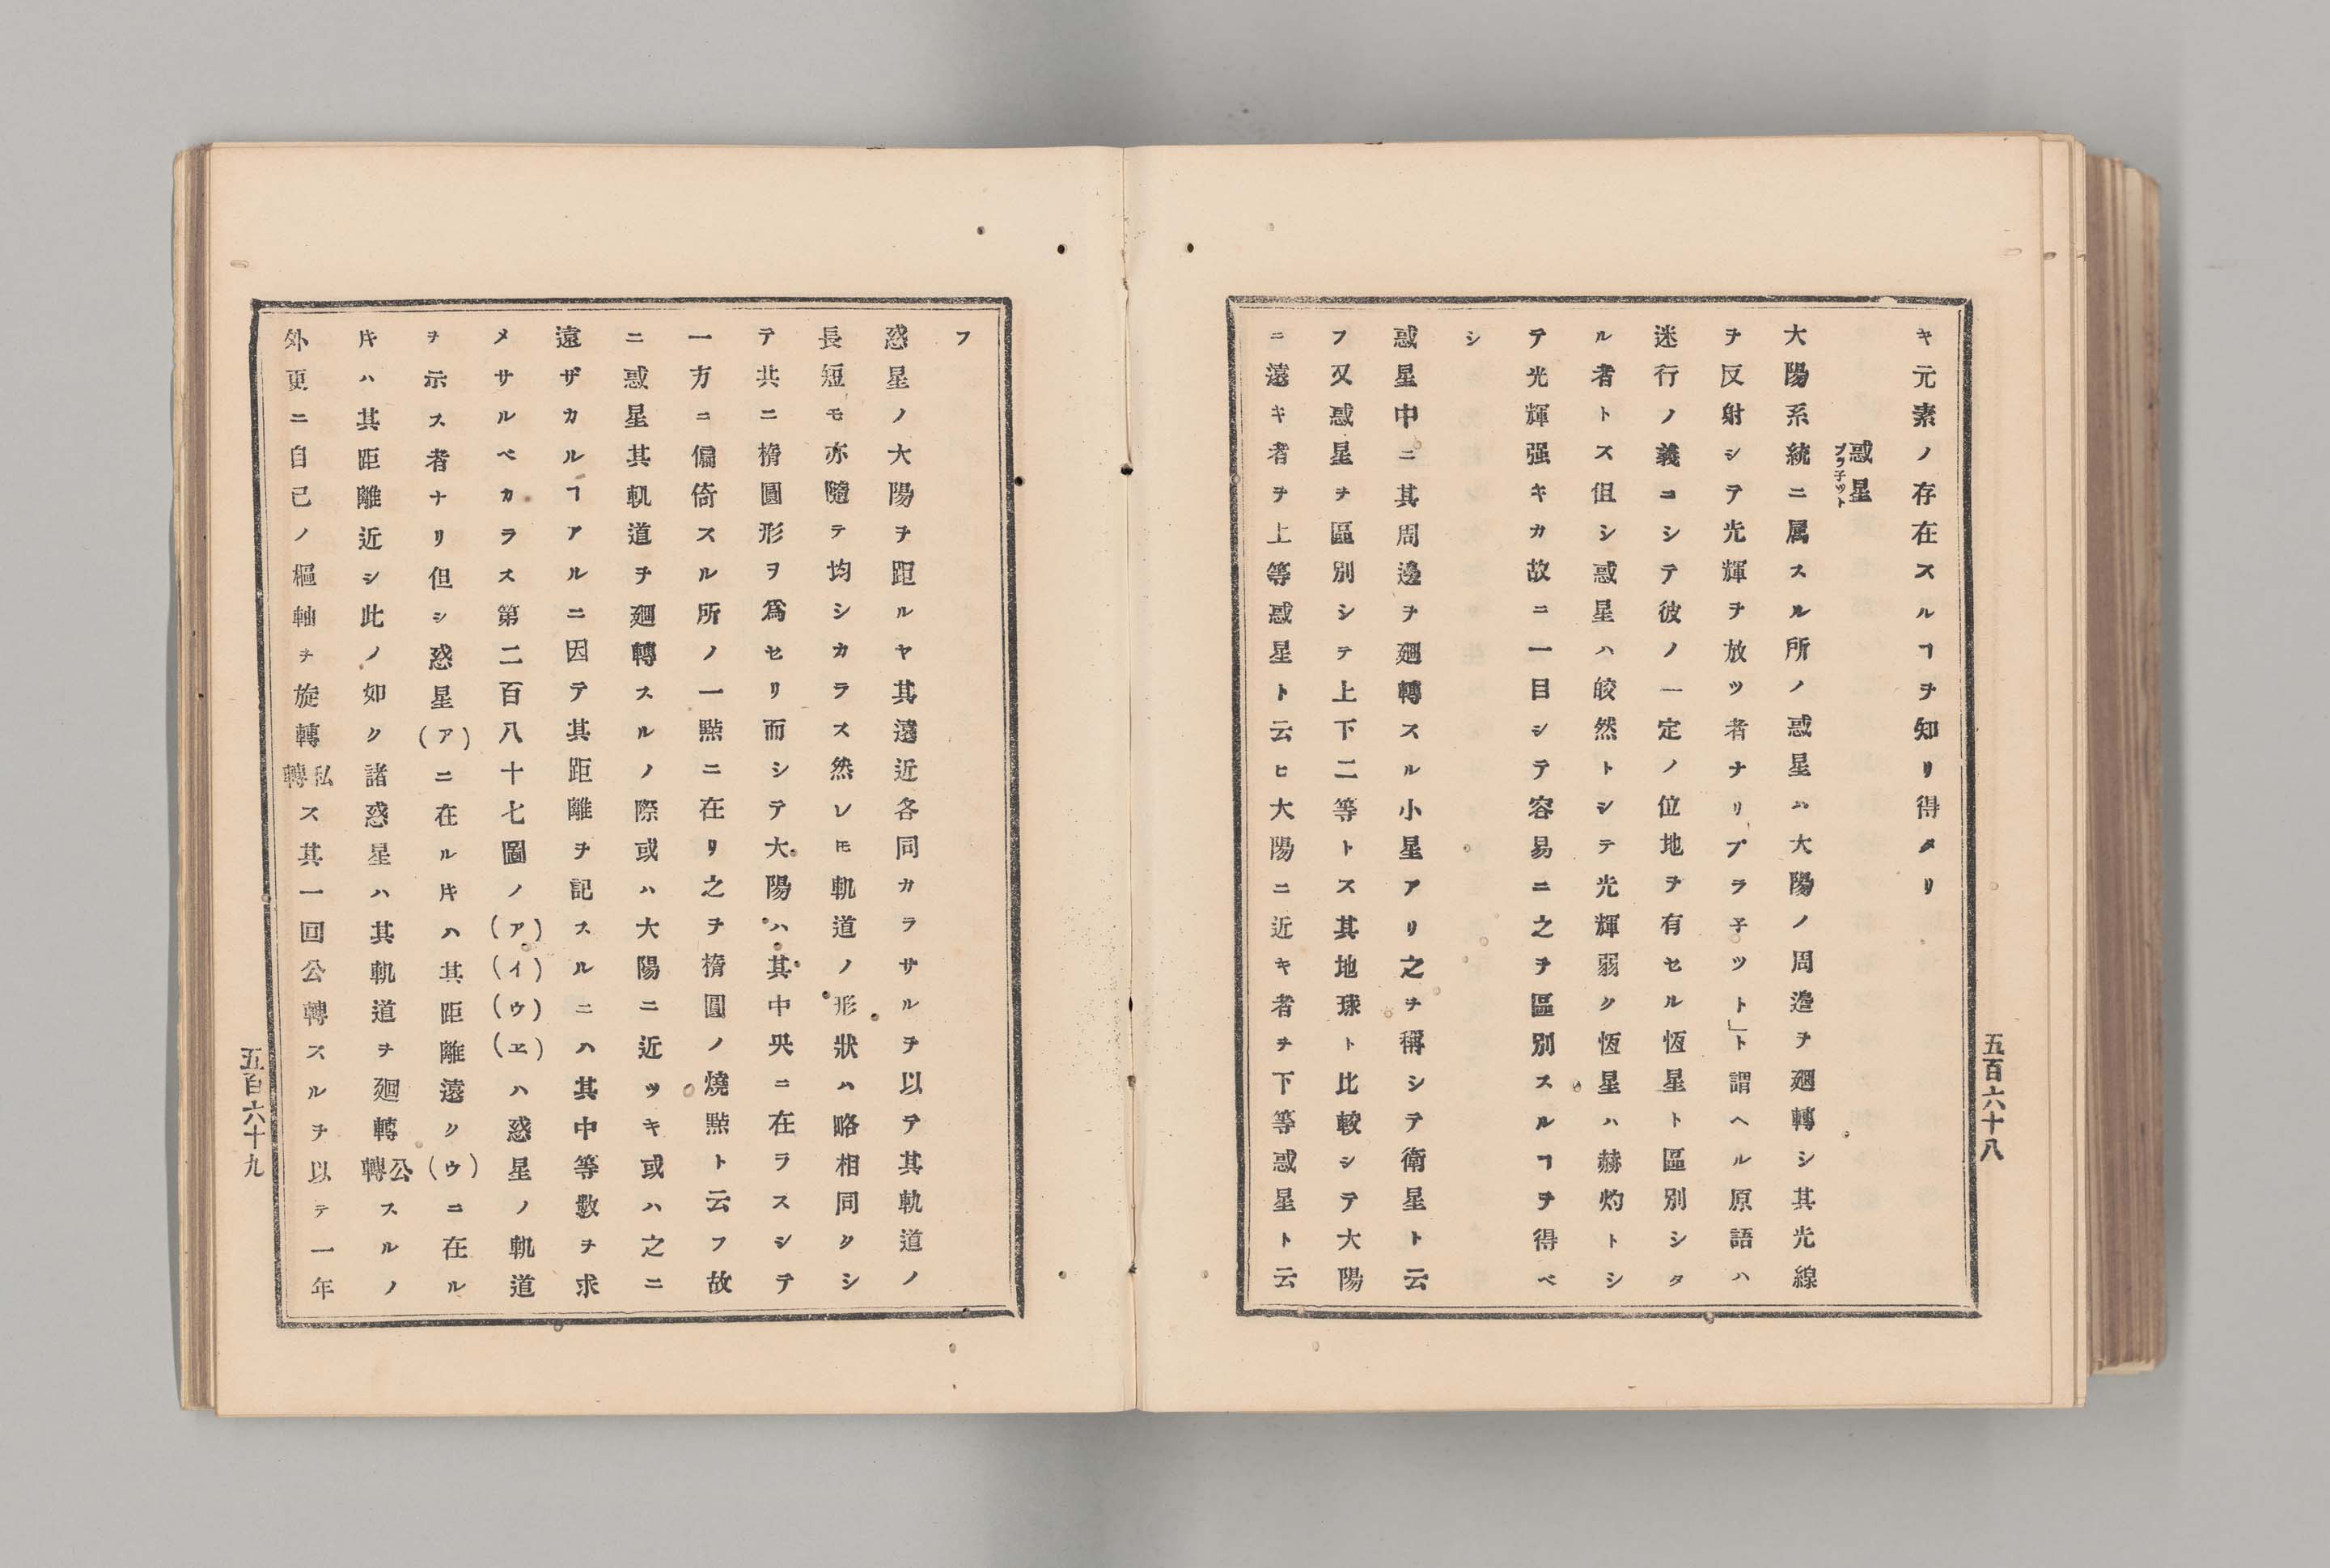 キ元素ノ存在スルヿヲ知リ得タリ
惑星
プラ子ット
大陽系統ニ属スル所ノ惑星ハ大陽ノ周邉ヲ廻轉シ其光線
ヲ反射シテ光輝ヲ放ツ者ナリプラ子ット」ト謂ヘル原語ハ
迷行ノ義コシテ彼ノ一定ノ位地ヲ有セル恆星ト區別シタ
ル者トス但シ惑星ハ皎然トシテ光輝弱ク恆星ハ赫灼トシ
テ光輝强キカ故ニ一目シテ容易ニ之ヲ區別スルヿヲ得ベ
シ
惑星中ニ其周邉ヲ廻轉スル小星アリ之ヲ稱シテ衛星ト云
フ又惑星ヲ區別シテ上下二等トス其地球ト比較シテ大陽
ニ遠キ者ヲ上等惑星ト云ヒ大陽ニ近キ者ヲ下等惑星ト云
五百六十八
フ
惑星ノ大陽ヲ距ルヤ其遠近各同カラサルヲ以テ其軌道ノ
長短モ亦隨テ均シカラス然レ𪜈軌道ノ形狀ハ略相同クシ
テ共ニ橢圓形ヲ爲セリ而シテ大陽ハ其中央ニ在ラスシテ
一方ニ偏倚スル所ノ一㸃ニ在リ之ヲ橢圓ノ燒㸃ト云フ故
ニ惑星其軌道ヲ廻轉スルノ際或ハ大陽ニ近ツキ或ハ之ニ
遠ザカルヿアルニ因テ其距離ヲ記スルニハ其中等數ヲ求
メサルベカラス第二百八十七圖ノ(ア)(イ)(ウ)(ヱ)ハ惑星ノ軌道
ヲ示ス者ナリ但シ惑星(ア)ニ在ル𬼀ハ其距離遠ク(ウ)ニ在ル
𬼀ハ其距離近シ此ノ如ク諸惑星ハ其軌道ヲ廻轉公轉スルノ
外更ニ自己ノ樞軸ヲ旋轉私轉ス其一回公轉スルヲ以テ一年
五百六十九